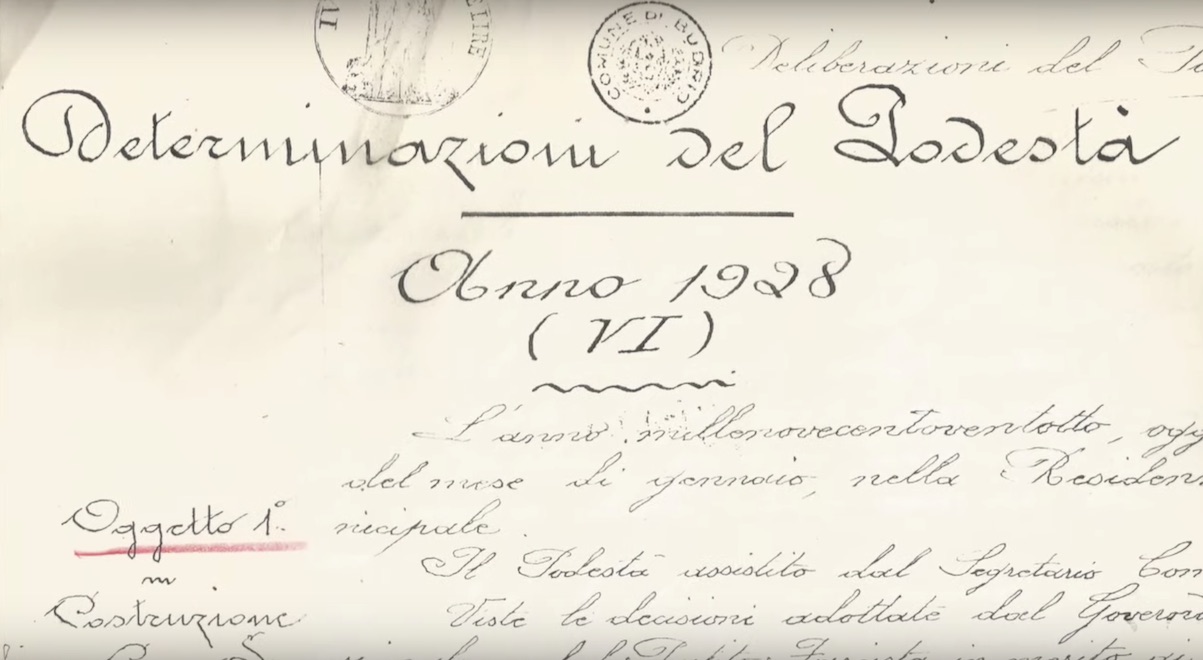 LIRE
COMUNE DI BUDRIO
Deliberazioni del
Determinazioni del Podestà
Anno 1928
(VI)
L'anno millenovecentoventotto, ogg
del mese di gennaio, nella Residen
Oggetto 1° nicipale.
Il Podestà assistito dal Segretario Com
Costruzione Viste le decisioni adottate dal Govern